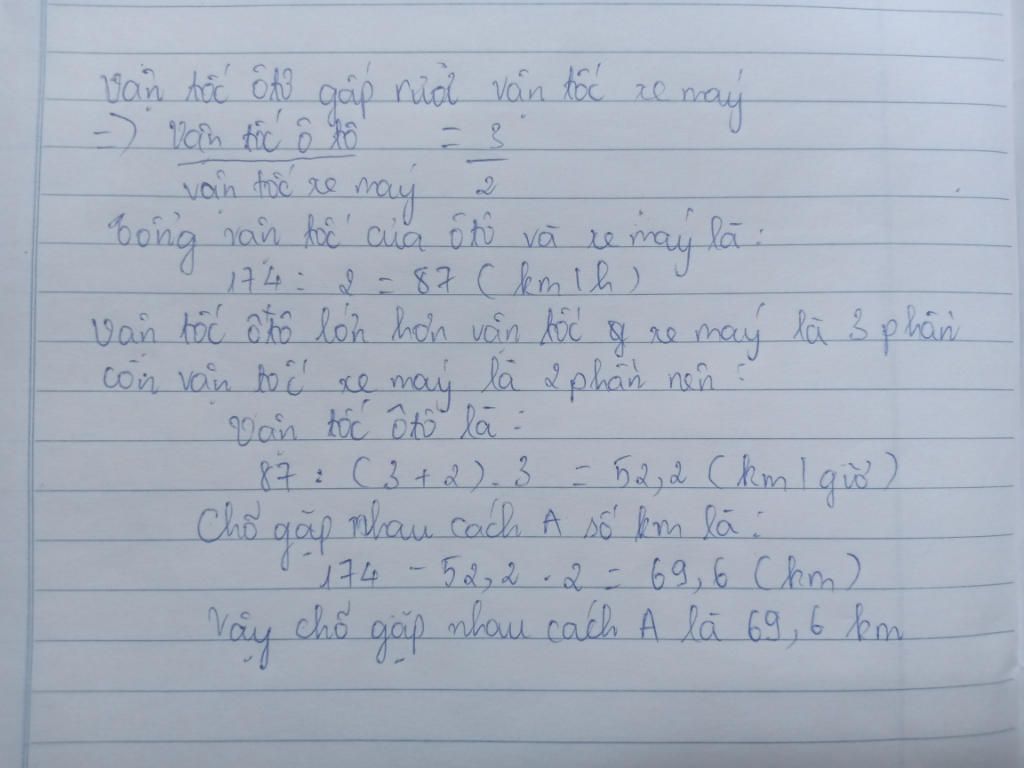 Vận tốc ôtô gấp rưỡi vận tốc xe máy
=> Vận tốc ô tô = 3
vận tốc xe máy 2
Tổng vận tốc của ôtô và xe máy là:
174 : 2 = 87 ( km / h )
Vận tốc ôtô lớn hơn vận tốc xe máy là 3 phần
còn vận tốc xe máy là 2 phần nên :
Vận tốc ôtô là :
87 : ( 3 + 2 ) . 3 = 52,2 ( km / giờ )
Chỗ gặp nhau cách A số km là :
174 - 52,2 . 2 = 69,6 ( km )
Vậy chỗ gặp nhau cách A là 69,6 km